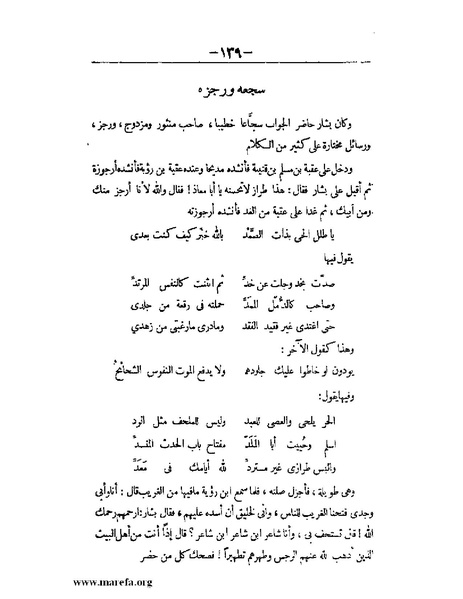 -١٣٩-
سجعه ورجزه
وكان بشار حاضر الجواب سجَّاعا خطيبا، صاحب منثور ومزدوج، ورجز،
ورسائل مختارة على كثير من الكلام
ودخل على عقبة بن مسلم بن قتيبة فأنشده مديحا وعنده عقبة بن رؤبة فأنشده أرجوزة
ثم أقبل على بشار فقال: هذا طراز لا تحسنه يا أبا معاذ! فقال والله لأنا أرجز منك
ومن أبيك، ثم غدا على عقبة من الغد فأنشده أرجوزته
يا طلل الحى بذات الصَّمْد بالله خبِّر كيف كنت بعدى
يقول فيها
صدَّت بخد وجلت عن خدِّ ثم انثنت كالنفس المرتدِّ
وصاحب كالدُّمَّل الممدِّ حملته فى رقعة من جلدى
حتى اغتدى غير فقيد الفقد ومادرى مارغبتى من زهدي
وهذا كقول الآخر:
يودون لو خاطوا عليك جلودهم ولا يدفع الموت النفوس الشحائحُ
وفيها يقول:
الحر يلحى والعصى للعبد وليس للملحف مثل الرد
اسلم وحُييت أبا المَلَدِّ مفتاح باب الحدث المنسدِّ
والبس طرازى غير مستردِّ لله أيامك فى مَعَدِّ
وهى طويلة، فأجزل صلته، فلما سمع ابن رؤبة مافيها من الغريب قال: أنا وأبى
وجدى فتحنا الغريب للناس، وانى لخليق أن أسده عليهم، فقال بشار: ارحمهم رحمك
الله! قال تستخف بى، وأنا شاعر ابن شاعر ابن شاعر؟ قال إذاً أنت من أهل البيت
الذين أذهب الله عنهم الرجس وطهرهم تطهيراً! فضحك كل من حضر
www.marefa.org